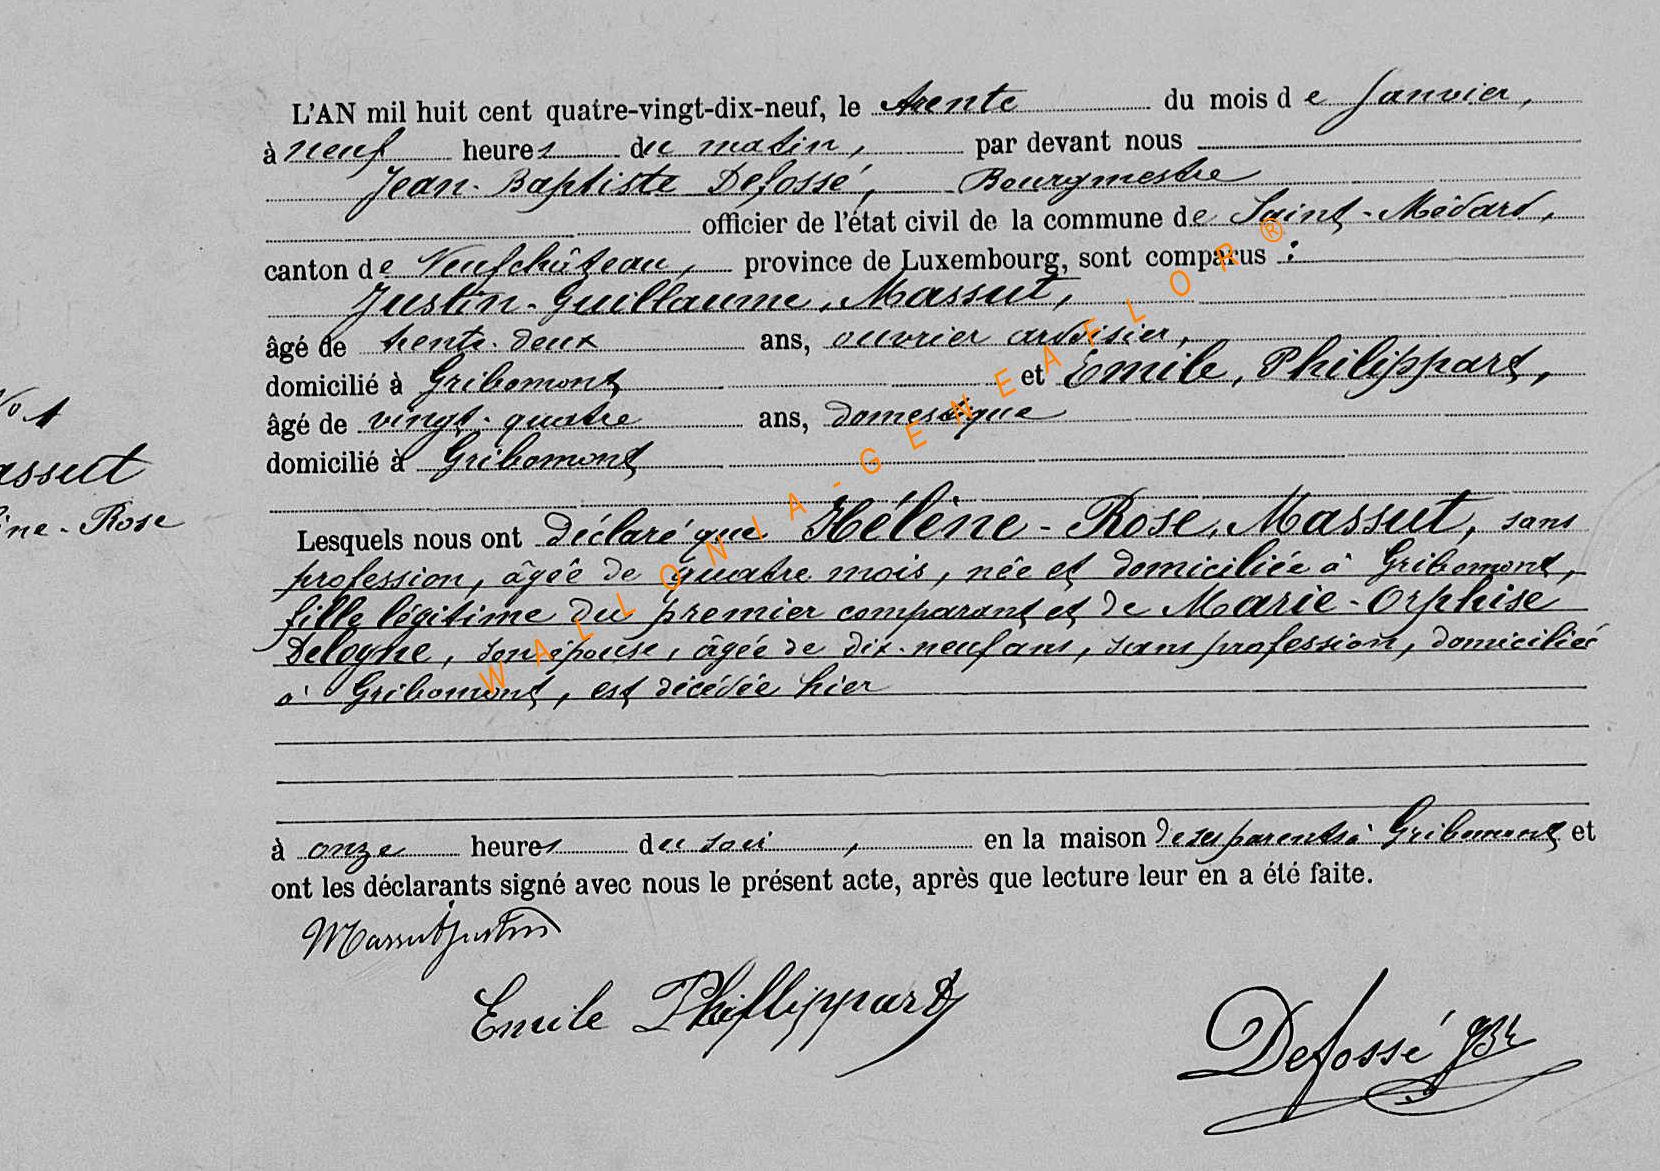 L'AN mil huit cent quatre-vingt-dix-neuf, le trente du mois de Janvier,
à neuf heures du matin, par devant nous
Jean-Baptiste Defossé, Bourgmestre
officier de l'état civil de la commune de Saint-Médard,
canton de Neufchâteau, province de Luxembourg, sont comparus :
Justin-Guillaume, Massut,
âgé de trente-deux ans, ouvrier ardoisier,
domicilié à Gribomont et Emile, Philippart,
âgé de vingt-quatre ans, domestique
domicilié à Gribomont
No 1
assut
ine-Rose
Lesquels nous ont déclaré que Hélène-Rose, Massut, sans
profession, âgée de quatre mois, née et domiciliée à Gribomont,
fille légitime du premier comparant et de Marie-Orphise
Delogne, son épouse, âgée de dix-neuf ans, sans profession, domiciliée
à Gribomont, est décédée hier
à onze heures du soir, en la maison de ses parents à Gribomont et
ont les déclarants signé avec nous le présent acte, après que lecture leur en a été faite.
Massut Justin
Emile Phillippart
Defossé JBt
WALLONIA-GENEAFLOR®